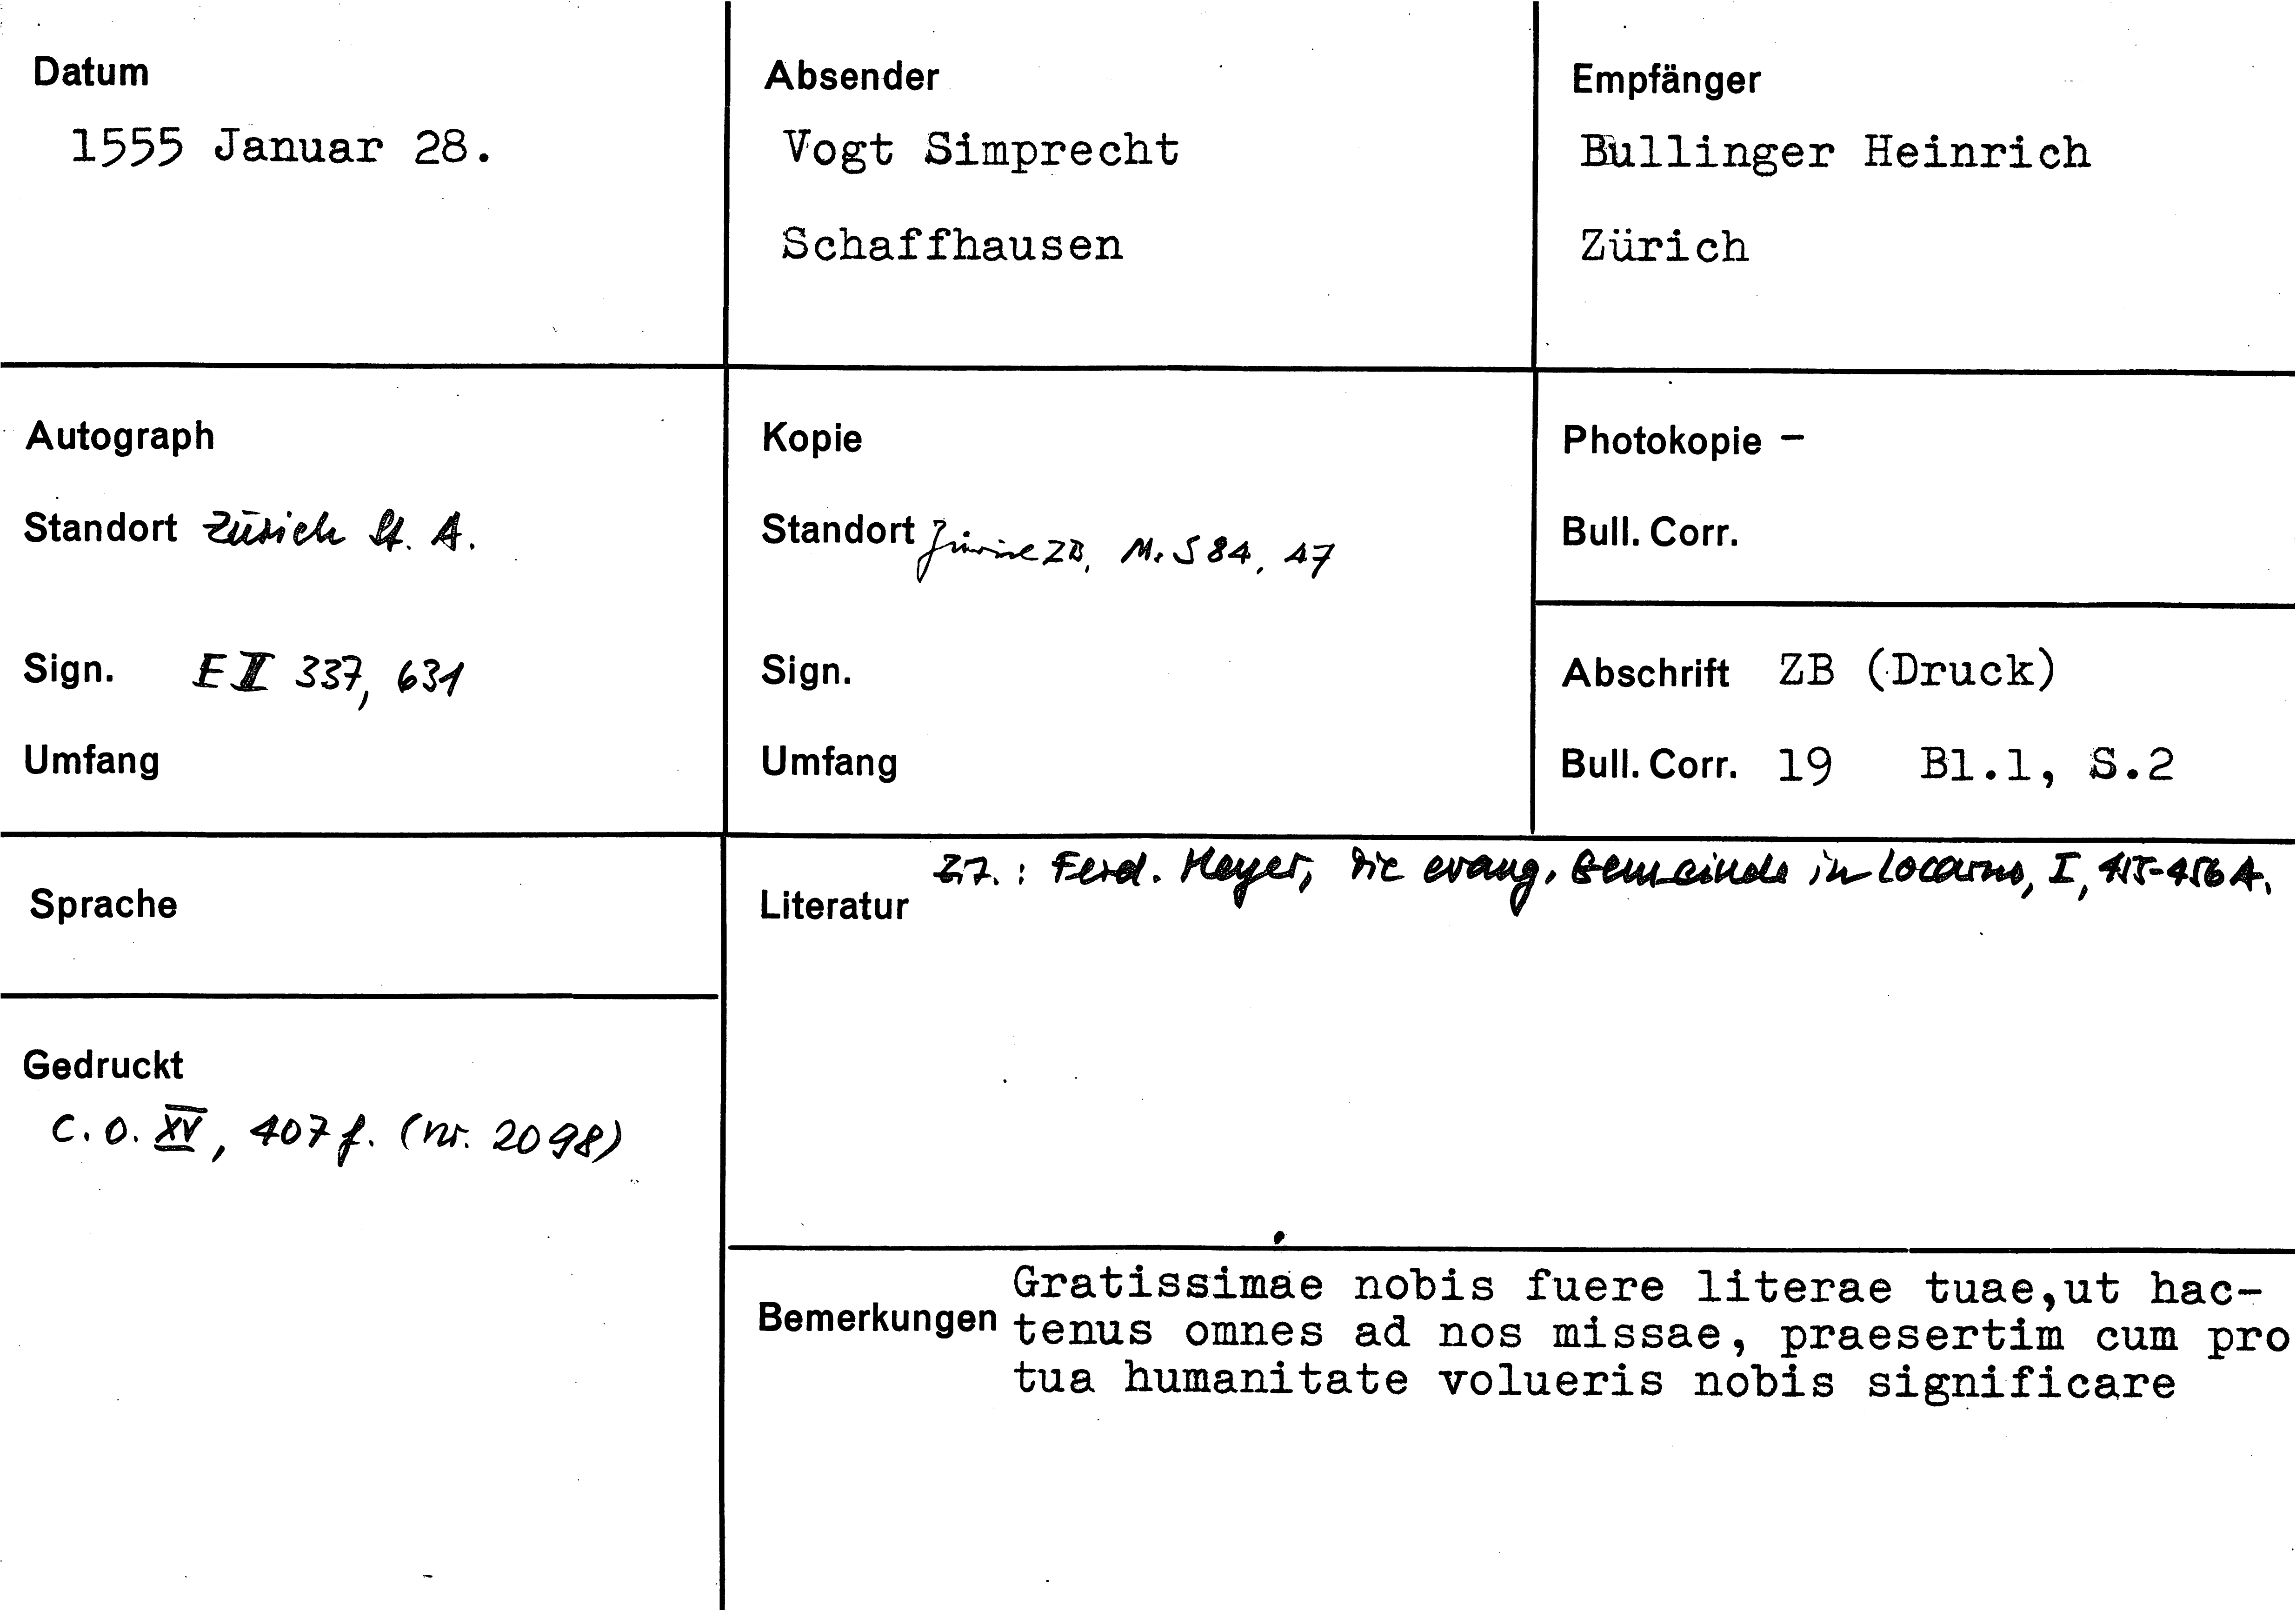 Datum
1555 Januar 28.
Absender
Vogt Simprecht
Schaffhausen
Empfänger
Bullinger Heinrich
Zürich
Autograph
Standort Zürich St. A.
Sign. E II 337, 631
Umfang
Kopie
Standort ZB, Ms S 84, 47
Sign.
Umfang
Photokopie –
Bull. Corr.
Abschrift ZB (Druck)
Bull. Corr. 19 Bl.1, S.2
Sprache
Gedruckt
C. O. XV, 407 f. (nr. 2098)
Literatur
: Ferd. Meyer, Die evang. Gemeinde in Locarno, I,
Bemerkungen
Gratissimae nobis fuere literae tuae,ut hac-
tenus omnes ad nos missae, praesertim cum pro
tua humanitate volueris nobis significare